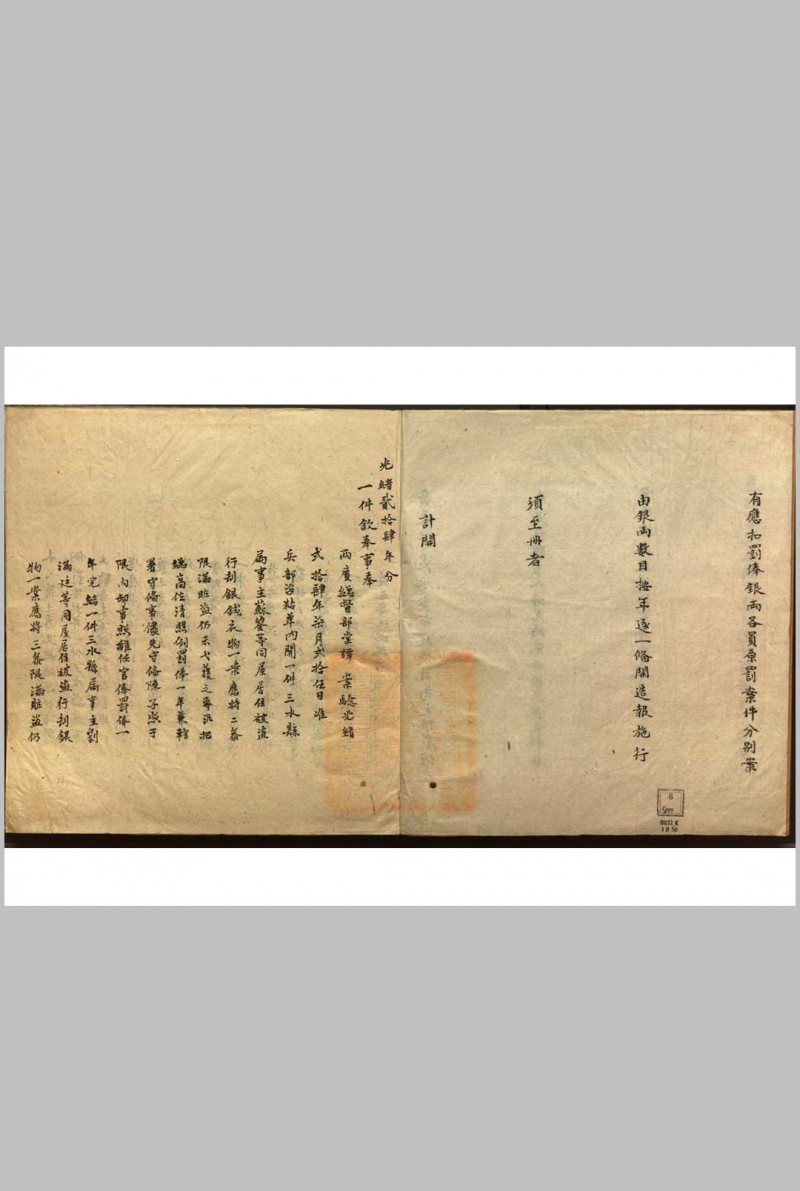 有應扣罰俸銀兩各員桑罰案件分别案
由銀兩數目按年逐一條開造報施行
須至冊者
計開
光緒貳拾肆年分
一件欽奉事奉
兩廣總督部堂譚 案驗光緒
弍拾肆年柒月弍拾伍日准
兵部咨粘单内開一件三水縣
属事主蘇 等同屋居住被盜
行刦銀錢衣物一案應将二叅
限滿賍盜仍未弋獲之專汛把
總高仕清照例罰俸一年兼轄
署守俻事儘先守俻陳子 于
限内卸事照離任官俸罰俸一
年完結一件三水縣属事主劉
滿廷等同屋居住被盜行刦銀
物一案應将三叅限滿賍盜仍
6
Serr
0032 K
1 D 50